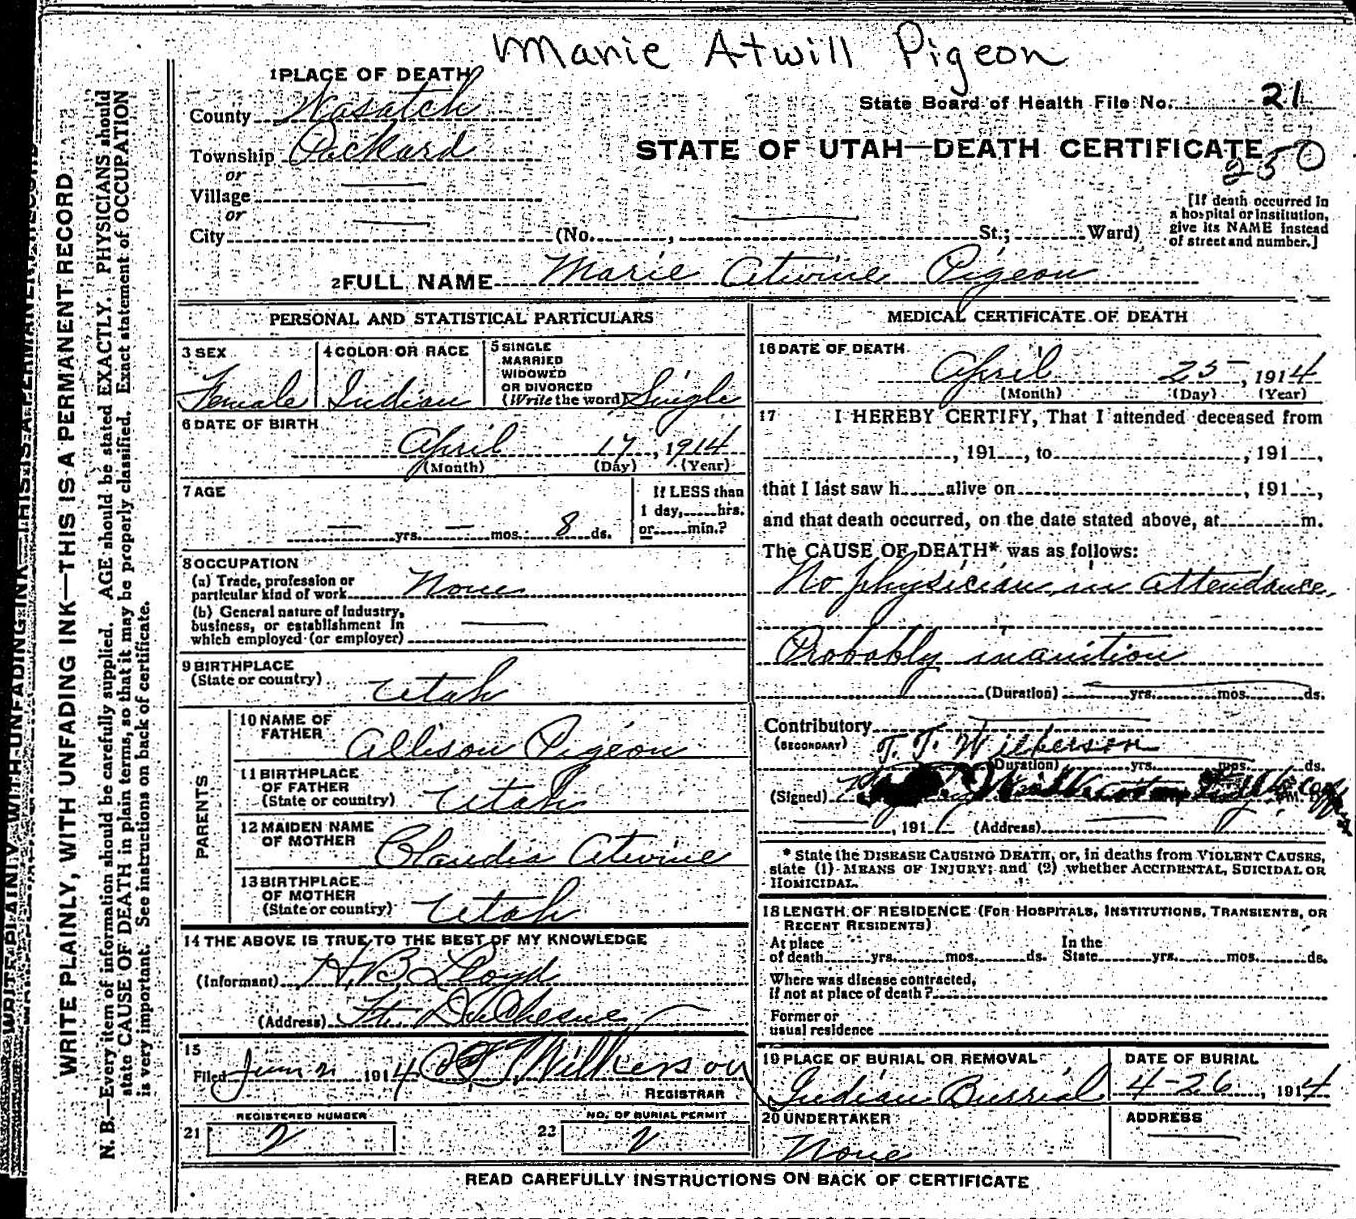 Marie Atwill Pigeon
1 PLACE OF DEATH
County Wasatch
State Board of Health File No. 21
Township Packard
STATE OF UTAH—DEATH CERTIFICATE
250
or
Village
or
City (No. , St.; Ward)
[If death occurred in a hospital or institution, give its NAME instead of street and number.]
2 FULL NAME Marie Atwine Pigeon
PERSONAL AND STATISTICAL PARTICULARS
3 SEX
Female
4 COLOR OR RACE
Indian
5 SINGLE
MARRIED
WIDOWED
OR DIVORCED
(Write the word) Single
6 DATE OF BIRTH
April 17, 1914
(Month) (Day) (Year)
7 AGE
— yrs. — mos. 8 ds.
If LESS than
1 day, hrs.
or min.?
8 OCCUPATION
(a) Trade, profession or
particular kind of work None
(b) General nature of Industry,
business, or establishment in
which employed (or employer)
9 BIRTHPLACE
(State or country) Utah
PARENTS
10 NAME OF
FATHER Allison Pigeon
11 BIRTHPLACE
OF FATHER
(State or country) Utah
12 MAIDEN NAME
OF MOTHER Claudia Atwine
13 BIRTHPLACE
OF MOTHER
(State or country) Utah
14 THE ABOVE IS TRUE TO THE BEST OF MY KNOWLEDGE
(Informant) H.B. Lloyd
(Address) Ft. DuChesne
15
Filed June 2 1914 Wilkerson
REGISTRAR
REGISTERED NUMBER
21 2
NO. OF BURIAL PERMIT
22 2
MEDICAL CERTIFICATE OF DEATH
16 DATE OF DEATH
April 25, 1914
(Month) (Day) (Year)
17 I HEREBY CERTIFY, That I attended deceased from
, 191 , to , 191 ,
that I last saw h alive on , 191 ,
and that death occurred, on the date stated above, at m.
The CAUSE OF DEATH* was as follows:
No physician in attendance,
Probably inanition
(Duration) yrs. mos. ds.
Contributory
(SECONDARY) T. T. Wilkerson
(Duration) yrs. mos. ds.
(Signed)
, 191 (Address)
* State the DISEASE CAUSING DEATH, or, in deaths from VIOLENT CAUSES,
state (1) MEANS OF INJURY; and (2) whether ACCIDENTAL, SUICIDAL OR
HOMICIDAL.
18 LENGTH OF RESIDENCE (FOR HOSPITALS, INSTITUTIONS, TRANSIENTS, OR
RECENT RESIDENTS)
At place
of death yrs. mos. ds.
In the
State yrs. mos. ds.
Where was disease contracted,
if not at place of death?
Former or
usual residence
19 PLACE OF BURIAL OR REMOVAL
Indian Burrial
DATE OF BURIAL
4-26, 1914
20 UNDERTAKER
None
ADDRESS
READ CAREFULLY INSTRUCTIONS ON BACK OF CERTIFICATE
WRITE PLAINLY, WITH UNFADING INK—THIS IS A PERMANENT RECORD
N. B.—Every item of information should be carefully supplied. AGE should be stated EXACTLY. PHYSICIANS should
state CAUSE OF DEATH in plain terms, so that it may be properly classified. Exact statement of OCCUPATION
is very important. See instructions on back of certificate.